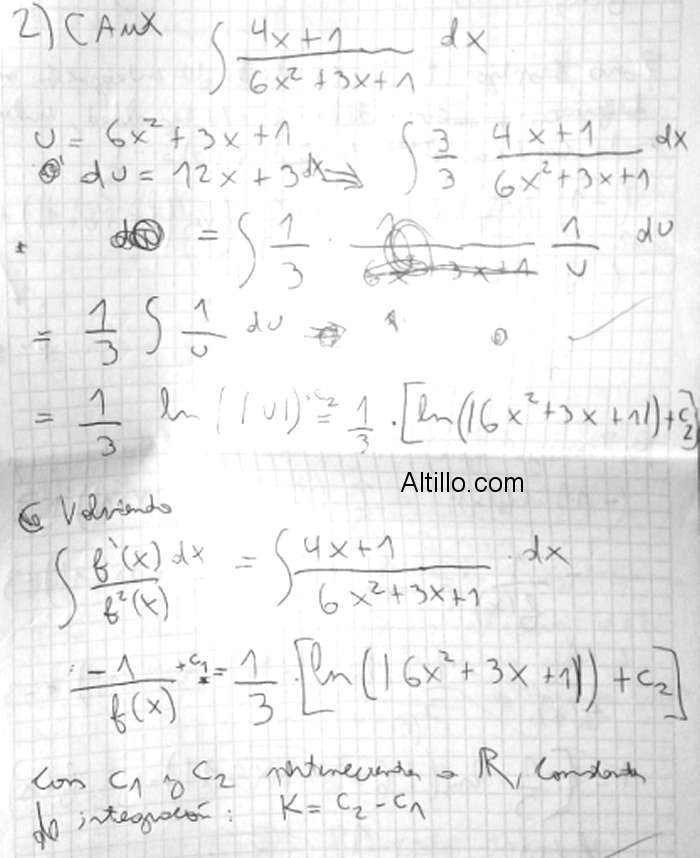 2) CAux ∫ (4x+1)/(6x²+3x+1) dx
u = 6x²+3x+1
du = 12x+3dx ⇒ ∫ 3/3 (4x+1)/(6x²+3x+1) dx
= ∫ 1/3 · 1/u du
= 1/3 ∫ 1/u du
= 1/3 ln(|u|)+C2 = 1/3 · [ln(|6x²+3x+1|)+C2]
Altillo.com
Volviendo
∫ f'(x)/f²(x) dx = ∫ (4x+1)/(6x²+3x+1) · dx
-1/f(x) + C1 = 1/3 · [ln(|6x²+3x+1|)+C2]
Con C1 y C2 pertenecientes a ℝ, constantes
de integración: K = C2 - C1